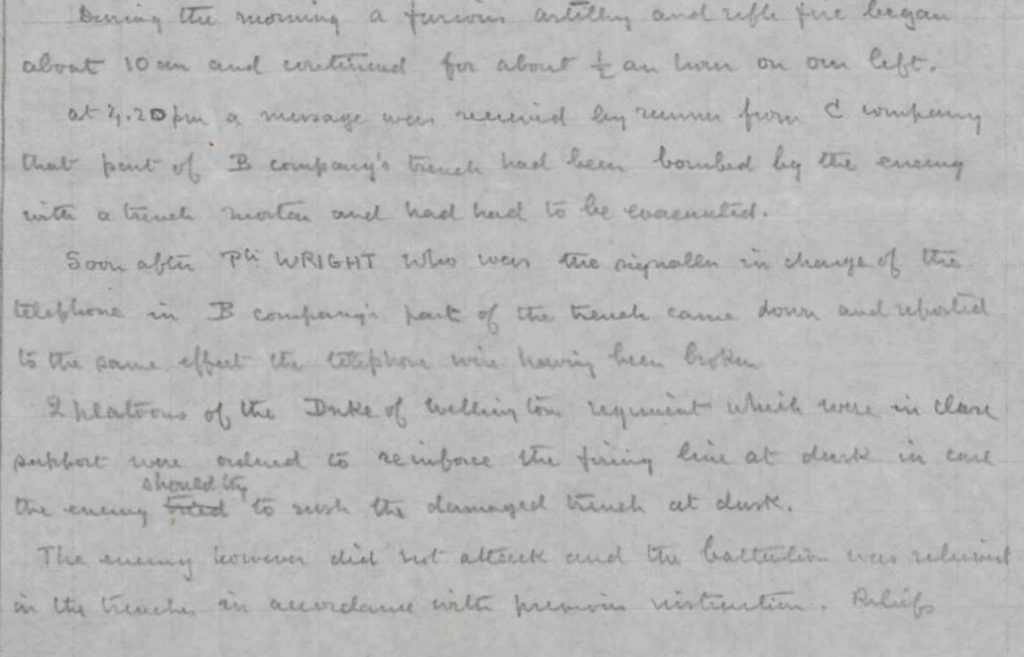 During the morning a furious artillery and rifle fire began
about 10 am and continued for about ½ an hour on our left.
at 4.20 pm a message was received by runner from C company
that part of B company's trench had been bombed by the enemy
with a trench mortar and had had to be evacuated.
Soon after Pte WRIGHT who was the signaller in charge of the
telephone in B company's part of the trench came down and reported
to the same effect the telephone wire having been broken
2 platoons of the Duke of Wellington regiment which were in close
support were ordered to reinforce the firing line at dusk in case
should try
the enemy tried to rush the damaged trench at dusk.
The enemy however did not attack and the battalion was relieved
in the trenches in accordance with previous instruction. Reliefs